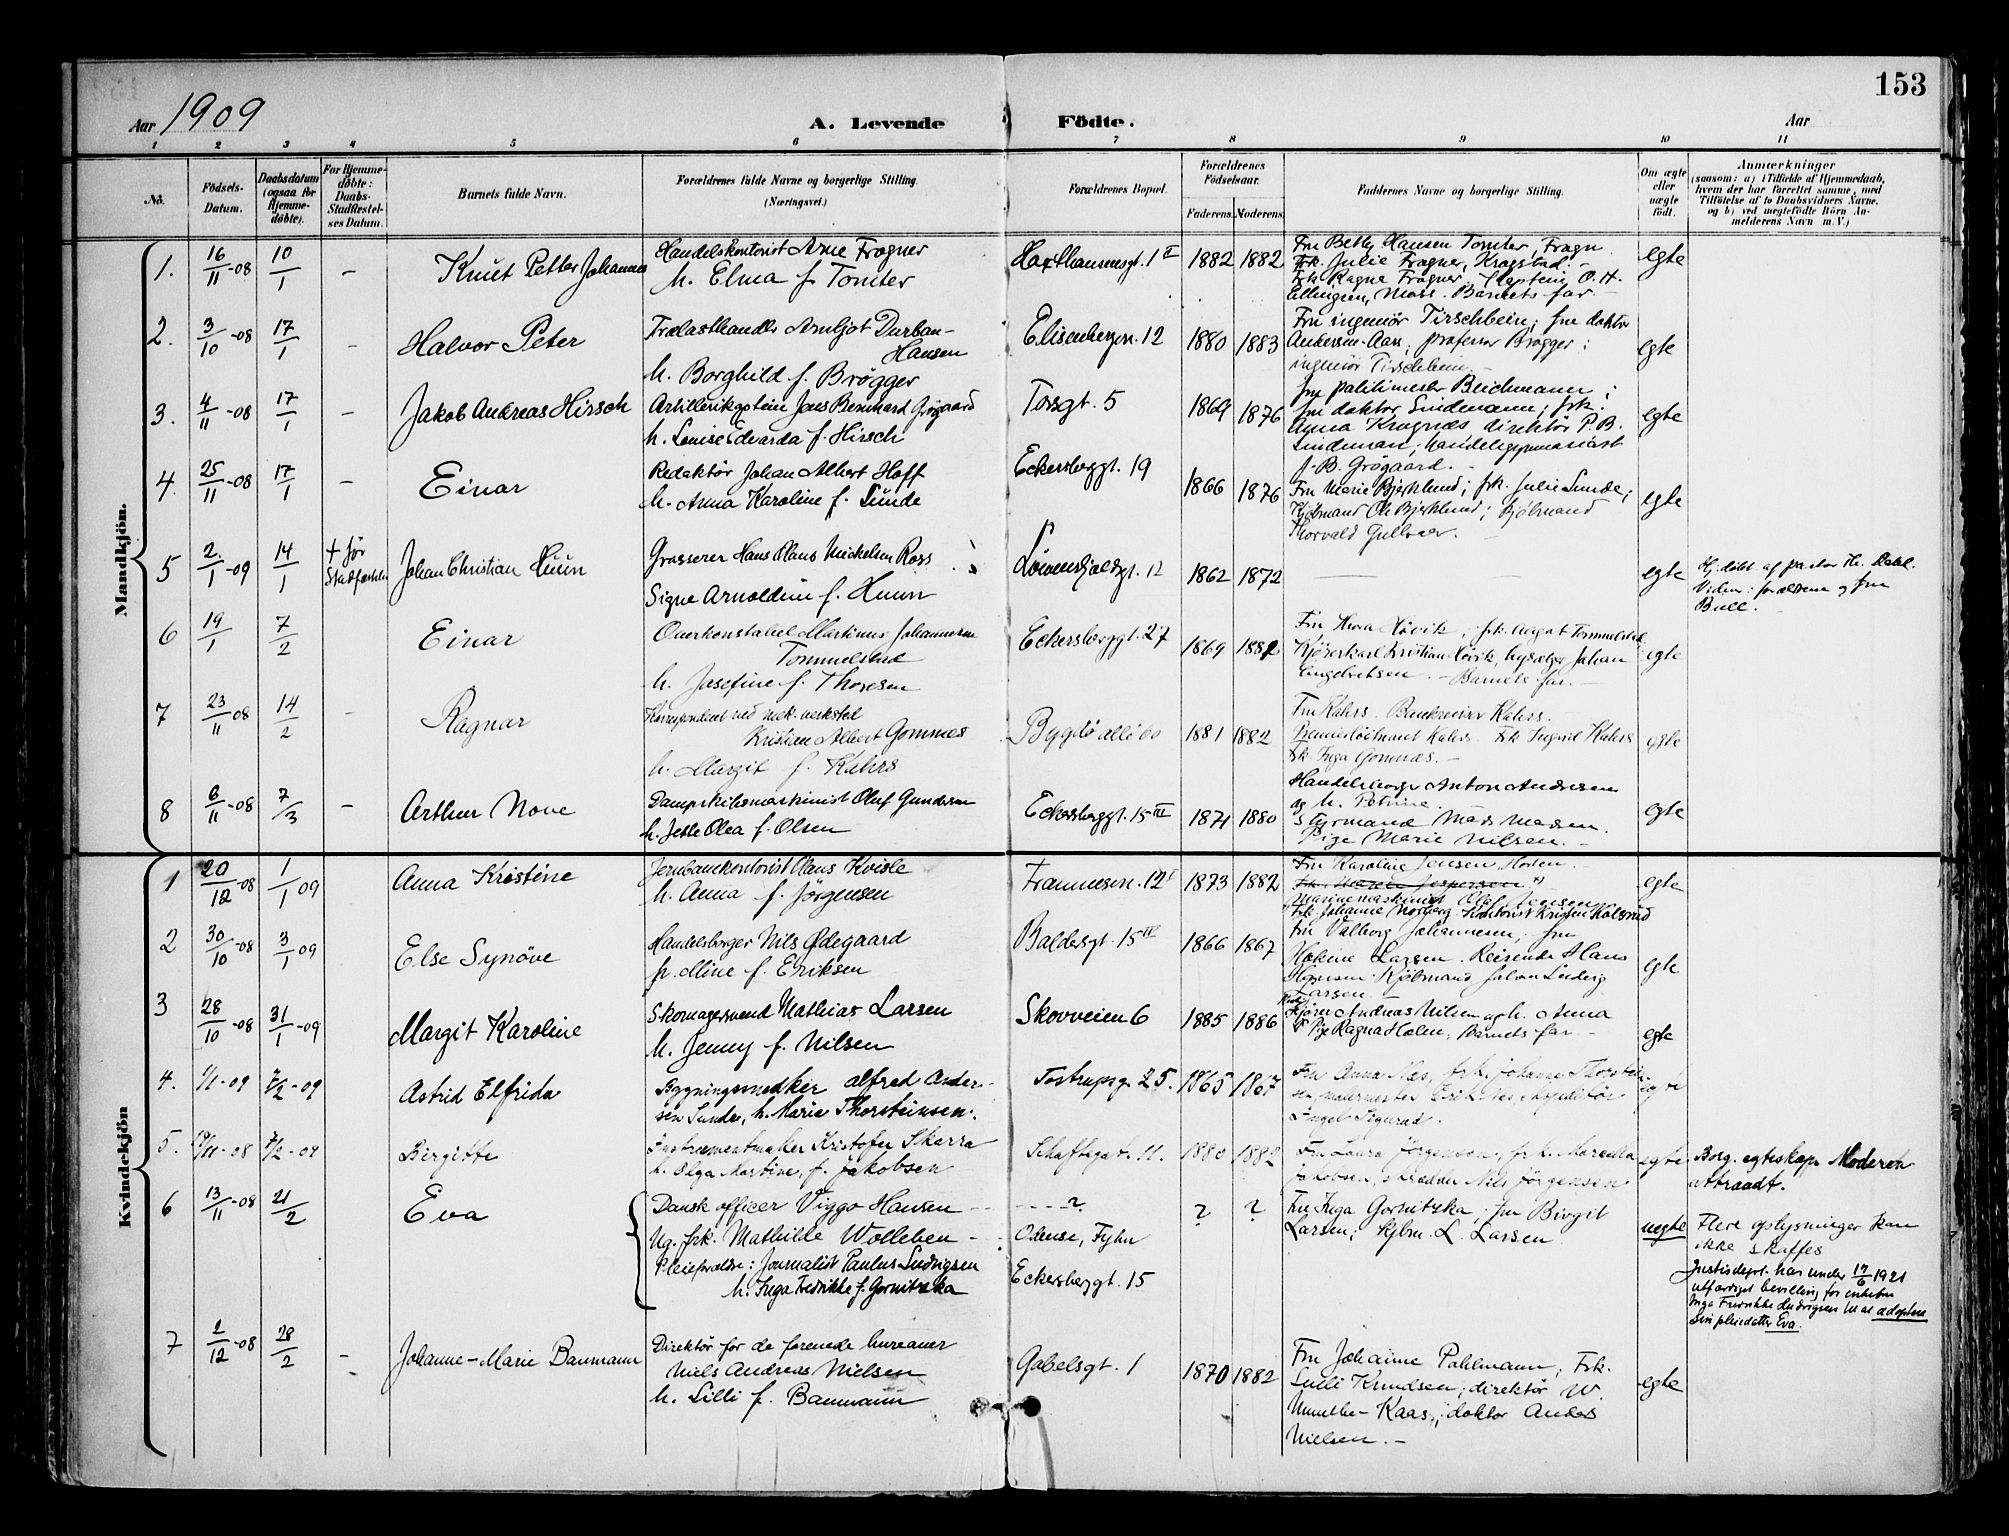 153
Aar 1909
A. Levende Födte.
Aar
1 2 3 4 5 6 7 8 9 10 11
No.
Födsels-Datum.
Daabsdatum (ogsaa för Hjemme-döbte).
For Hjemme-döbte: Daabs-Stadfæstel-ses Datum.
Barnets fulde Navn.
Forældrenes fulde Navne og borgerlige Stilling.
(Næringsvei.)
Forældrenes Bopæl.
Forældrenes Födselsaar.
Faderens. Moderens.
Faddernes Navne og borgerlige Stilling.
Om ægte eller uægte födt.
Anmærkninger
(saasom: a) i Tilfælde af Hjemmedaab,
hvem der har forrettet samme, med
Tilföielse af to Daabsvidners Navne,
og b) ved uegtefödte Börn An-
melderens Navn m. V.)
Mandkjön.
1. 16/11-08 10/1 - Knut Petter Johannes
Handelskontorist Arne Frogner
h. Elma f. Tomter
Haxthausensgt. 1 II 1882 1882
Fru Betty Hansen Tomter, Frogn
Frk. Julie Frogner, Kragstad. -
Frk Ragna Frogner. Kaptein O. H.
Ellingsen, Moss. Barnets far. -
egte
2. 3/10-08 17/1 - Halvor Peter
Trælasthandler Arnljot Durban-
Hansen
h. Borghild f. Brøgger
Elisenbergvn. 12 1880 1883
Fru ingeniør Tirschbein; fru doktor
Ankersen-Aars; professor Brøgger;
ingeniør Tirschbein. -
egte
3. 4/11-08 17/1 - Jakob Andreas Hirsch
Artillerikaptein Jens Bernhard Grøgaard
h. Louise Edvarda f. Hirsch
Torsgt. 5 1869 1876
fru politimester Beichmann;
fru doktor Lindemann; frk.
Anna Kragnæs direktör P. B.
Lindeman; handelsgymnasiast
J. B. Grøgaard. -
egte
4. 25/11-08 17/1 - Einar
Redaktör Johan Albert Hoff
h. Anna Karoline f. Lunde
Eckersberggt. 19 1866 1876
Fru Marie Bjerklund; frk. Julie Lunde;
Kjøbmand Ole Bjerklund; Kjøbmand
Thorvald Gullvaer. -
egte
5 2/1-09 14/1 + før Stadfæstelse Johan Christian Huun
Grosserer Hans Claus Mickelsen Ross
Signe Arnoldine f. Huun
Løvenskjoldsgt. 12 1862 1872
— —
egte
Hj. døbt af pastor Th. Dahl.
Vidner: forældrene og fru
Bull. -
6 19/1 7/2 Einar
Overkonstabel Martinus Johannesen
Tommelstad
h. Josefine f. Thoresen
Eckersberggt. 27 1869 1882
Fru Thora Høvik, frk. Aagot Tommelstad,
Kjørerkarl Kristian Høvik, bysælger Johan
Engelretsen. - Barnets far. -
egte
7 23/11 08 14/2 - Ragnar
Korrespondent ved mek. verksted
Kristian Albert Gomnes
h. Margit f. Kahrs
Bygdö allé 60 1881 1882
Fru Kahrs. Bankreviser Kahrs. -
Premierløitnant Kahrs. Frk Ingrid Kahrs
Frk Inga Gomnæs. -
egte
8 6/11-08 7/3 - Arthur Nove
Dampskibsmaskinist Oluf Gundersen
h. Jette Olea f. Olsen
Eckersberggt. 15 III 1871 1880
Handelsborger Anton Andresen
og h. Petrine.
Styrmand Mads Madsen.
Pige Marie Nilsen. -
egte
Kvindekjön
1 20/12-08 1/1 09 Anna Kristine
Jernbanekontorist Hans Kvisle
h. Anna f. Jørgensen
Framnesvn. 12 I 1873 1882
Fru Karoline Jensen, Horten
Frk. Maren Jespersen x)
Marinemaskinist Olaf Jensen
x Frk Johanne Norberg. Kontorist Kristen Kolsrud
egte
2 30/10-08 3/1 09 Else Synöve
Handelsborger Nils Ødegaard
h. Mine f. Eriksen
Baldersgt. 15 IV 1866 1867
Fru Valborg Johannesen, fru
Hakine Larsen. Reisende Hans
Hansen. Kjøbmand Johan Ludvig
Larsen
egte
3 28/10-08 31/1-09 Margit Karoline
Skomagersvend Mathias Larsen
h. Jenny f. Nilsen
Skovveien 6 1885 1886
Andreas Nilsen og h. Anna
Pige Ragna Holen, Barnets far -
egte
4. 1/1-09 7/2-09 Astrid Elfrida
Bygningssnedker Alfred Ander-
sen Sunde, h. Marie Thorsteinsen.
Tostrupsg. 25. 1865 1867
Fru Anna Næs, frk. Johanne Thorstein-
sen, malermester Erik Næs,
Engel Sigurad.
egte
5. 19/11-08 7/2-09 Birgitte
Instrumentmaker Kristofer Skarra
h. Olga Martine, f. Jakobsen
Schaftegat. 11. 1880 1882
Fru Laura Jörgensen, frk. Marcella
Jakobsen, skrædder Nils Jörgensen
egte.
Borg. egteskap. Moderen
utbraadt.
6 13/11-08 21/2 Eva
Dansk officer Viggo Hansen - -
Ug. frk. Mathilde Wolleben - -
Pleieforældre: Journalist Paulus Ludvigsen
h. Inga Fredrikke f. Gornitzka
- - - - ?
Odense, Fyhn
Eckersberggt. 15
? ?
Fru Inga Gornitzka; fru Birgit
Larsen; kjbm. L. Larsen
uegte
Flere oplysninger kan
ikke skaffes
Justisdept. har under 17/6 1921
utfærdiget bevilling for enkefru
Inga Fredrikke Ludvigsen til at adoptere
sin pleiedatter Eva.
7 2/12-08 28/2 - Johanne-Marie Baumann
Direktör for de forenede bureauer
Niels Andreas Nielsen
h. Lilli f. Baumann
Gabelsgt. 1 1870 1882
Fru Johanne Pahlmann; Frk.
Lulli Knudsen; direktör W.
Munthe-Kaas; doktor Anders
Nielsen. -
egte